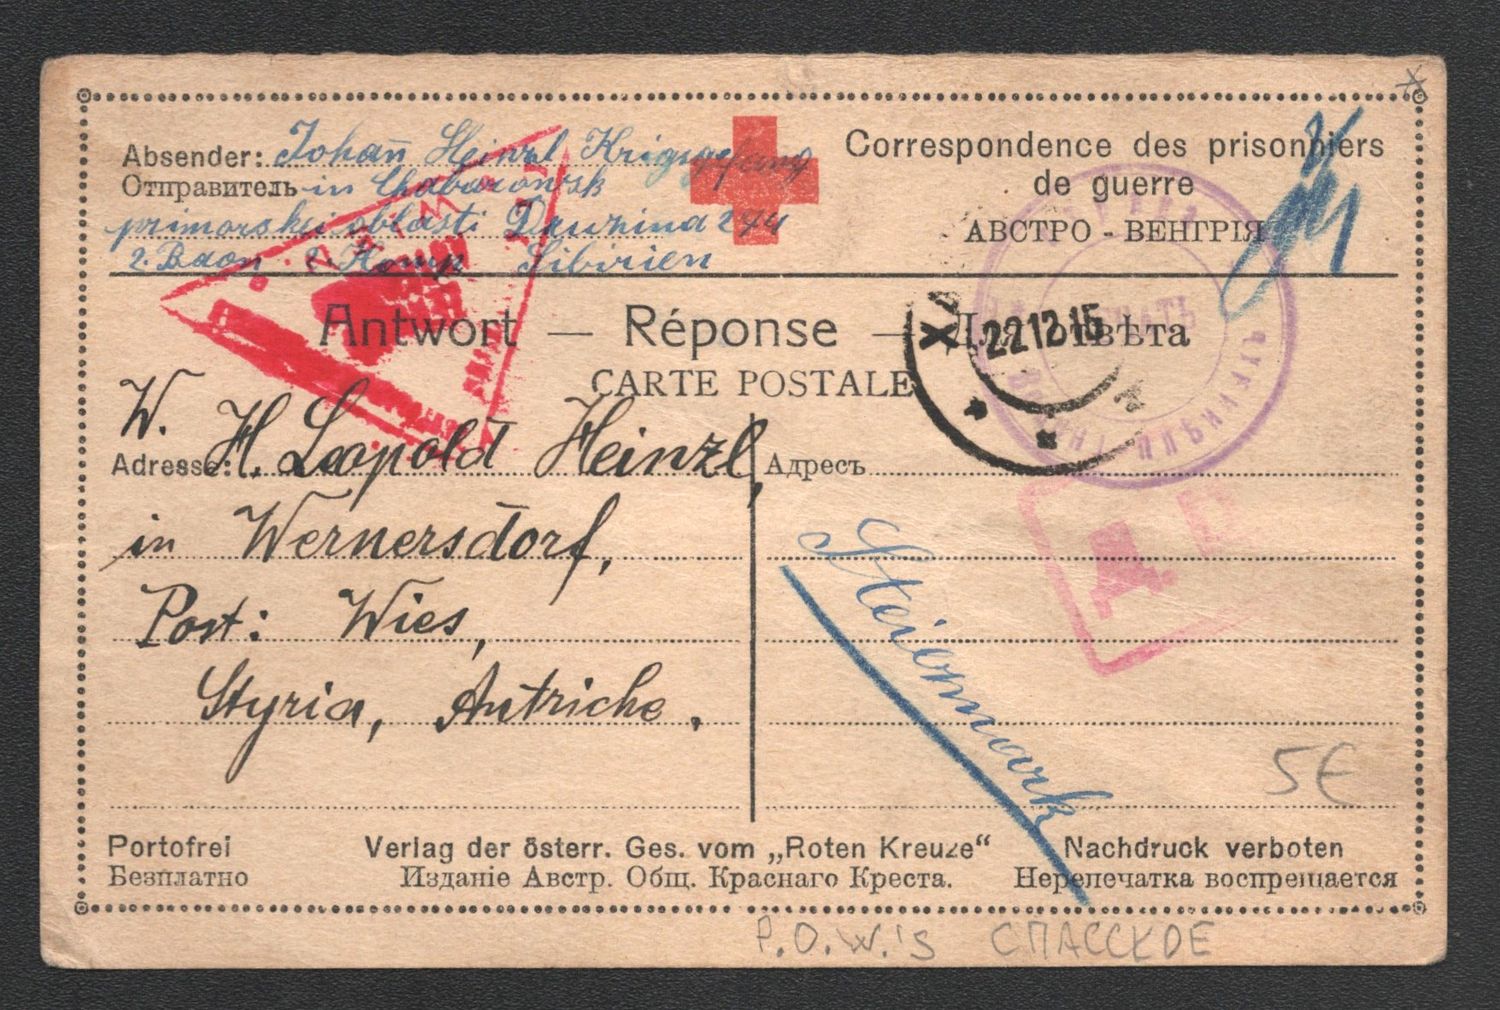 Correspondence des prisonniers
de guerre
АВСТРО - ВЕНГРІЯ
Absender: Johan̄ Heinzl Krigsgefang
Отправитель in Chabarowsk
primorskei oblasti Druzina 244
2. Baon 2. Komp Sibirien
Antwort — Réponse — Для отвѣта
22 12 15
CARTE POSTALE
W.
Adresse: H. Leopold Heinzl,
in Wernersdorf,
Post: Wies,
Styria, Autriche.
Адресъ
Steiermark
5€
Portofrei Verlag der österr. Ges. vom „Roten Kreuze“ Nachdruck verboten
Безплатно Изданіе Австр. Общ. Краснаго Креста. Нерепечатка воспрещается
P.O.W.'S СПАССКОЕ